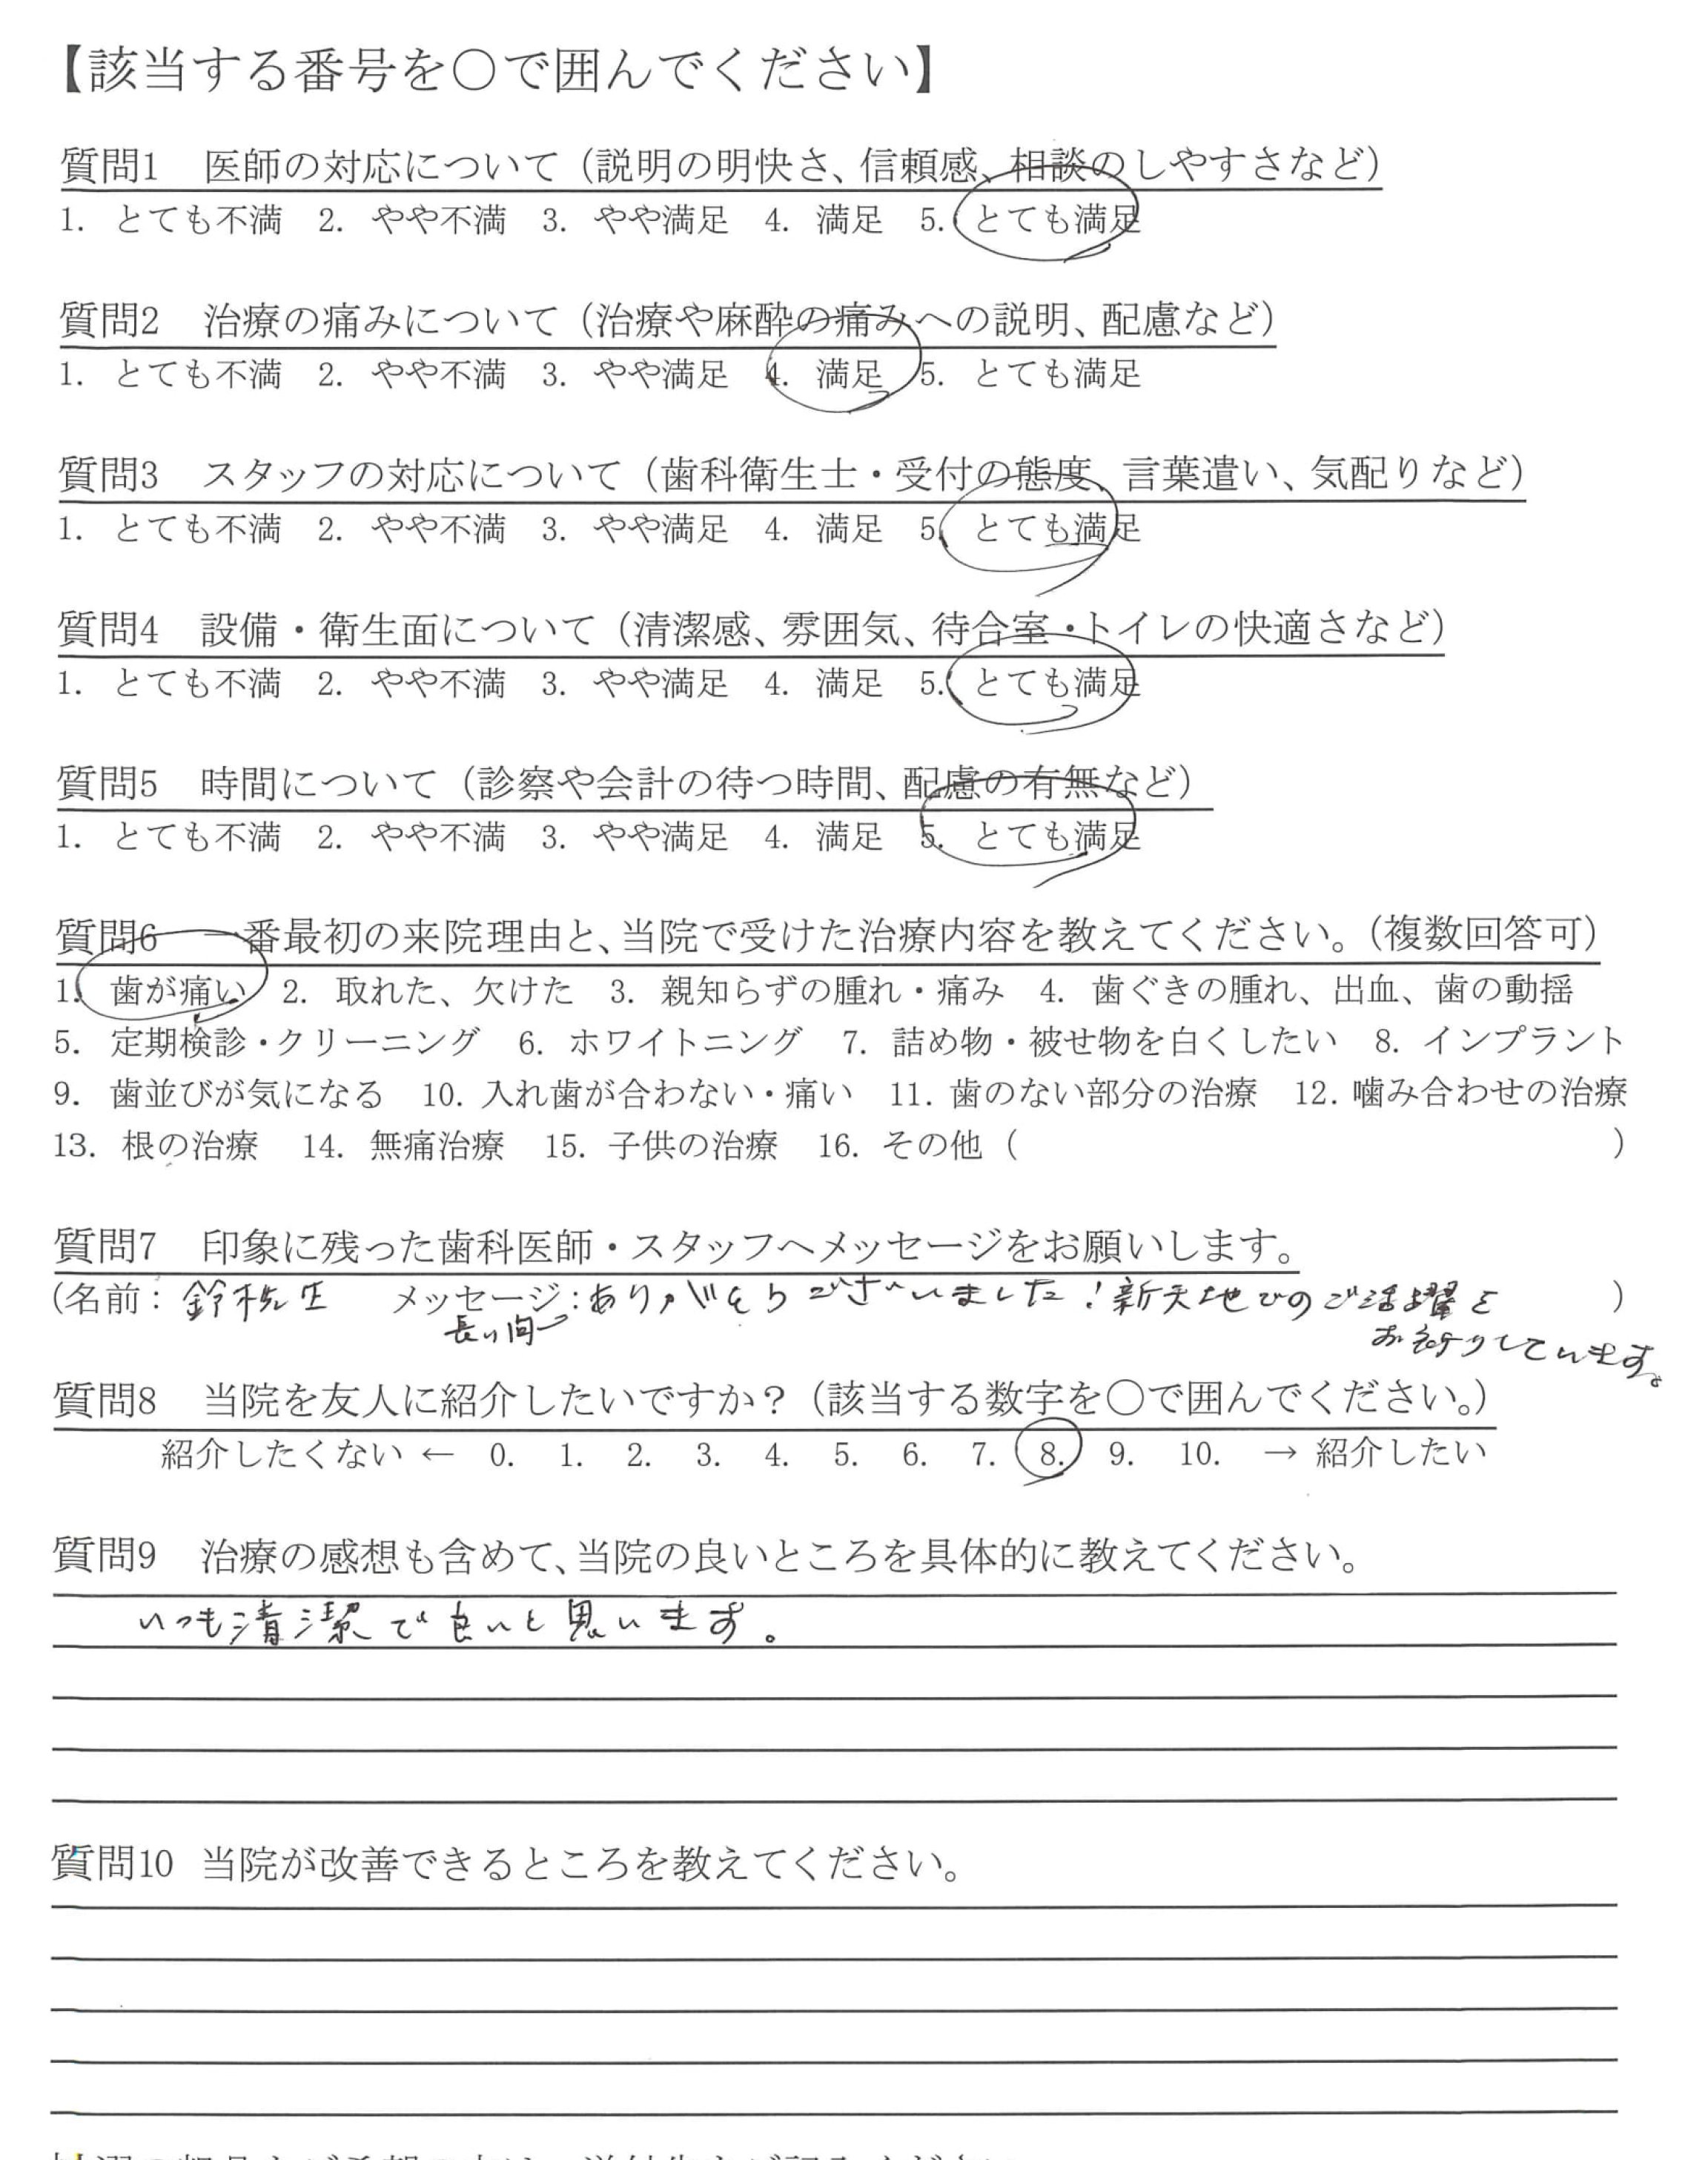 【該当する番号を○で囲んでください】
質問1　医師の対応について（説明の明快さ、信頼感、相談のしやすさなど）
1. とても不満　2. やや不満　3. やや満足　4. 満足　5. とても満足
質問2　治療の痛みについて（治療や麻酔の痛みへの説明、配慮など）
1. とても不満　2. やや不満　3. やや満足　4. 満足　5. とても満足
質問3　スタッフの対応について（歯科衛生士・受付の態度、言葉遣い、気配りなど）
1. とても不満　2. やや不満　3. やや満足　4. 満足　5. とても満足
質問4　設備・衛生面について（清潔感、雰囲気、待合室・トイレの快適さなど）
1. とても不満　2. やや不満　3. やや満足　4. 満足　5. とても満足
質問5　時間について（診察や会計の待つ時間、配慮の有無など）
1. とても不満　2. やや不満　3. やや満足　4. 満足　5. とても満足
質問6　一番最初の来院理由と、当院で受けた治療内容を教えてください。（複数回答可）
1. 歯が痛い　2. 取れた、欠けた　3. 親知らずの腫れ・痛み　4. 歯ぐきの腫れ、出血、歯の動揺
5. 定期検診・クリーニング　6. ホワイトニング　7. 詰め物・被せ物を白くしたい　8. インプラント
9. 歯並びが気になる　10. 入れ歯が合わない・痛い　11. 歯のない部分の治療　12. 噛み合わせの治療
13. 根の治療　14. 無痛治療　15. 子供の治療　16. その他（　　　）
質問7　印象に残った歯科医師・スタッフへメッセージをお願いします。
（名前：鈴木先生　メッセージ：ありがとうございました！新天地でのご活躍を　）
長い間
お祈りしています。
質問8　当院を友人に紹介したいですか？（該当する数字を○で囲んでください。）
紹介したくない ← 0. 1. 2. 3. 4. 5. 6. 7. 8. 9. 10. → 紹介したい
質問9　治療の感想も含めて、当院の良いところを具体的に教えてください。
いつも清潔で良いと思います。
質問10　当院が改善できるところを教えてください。